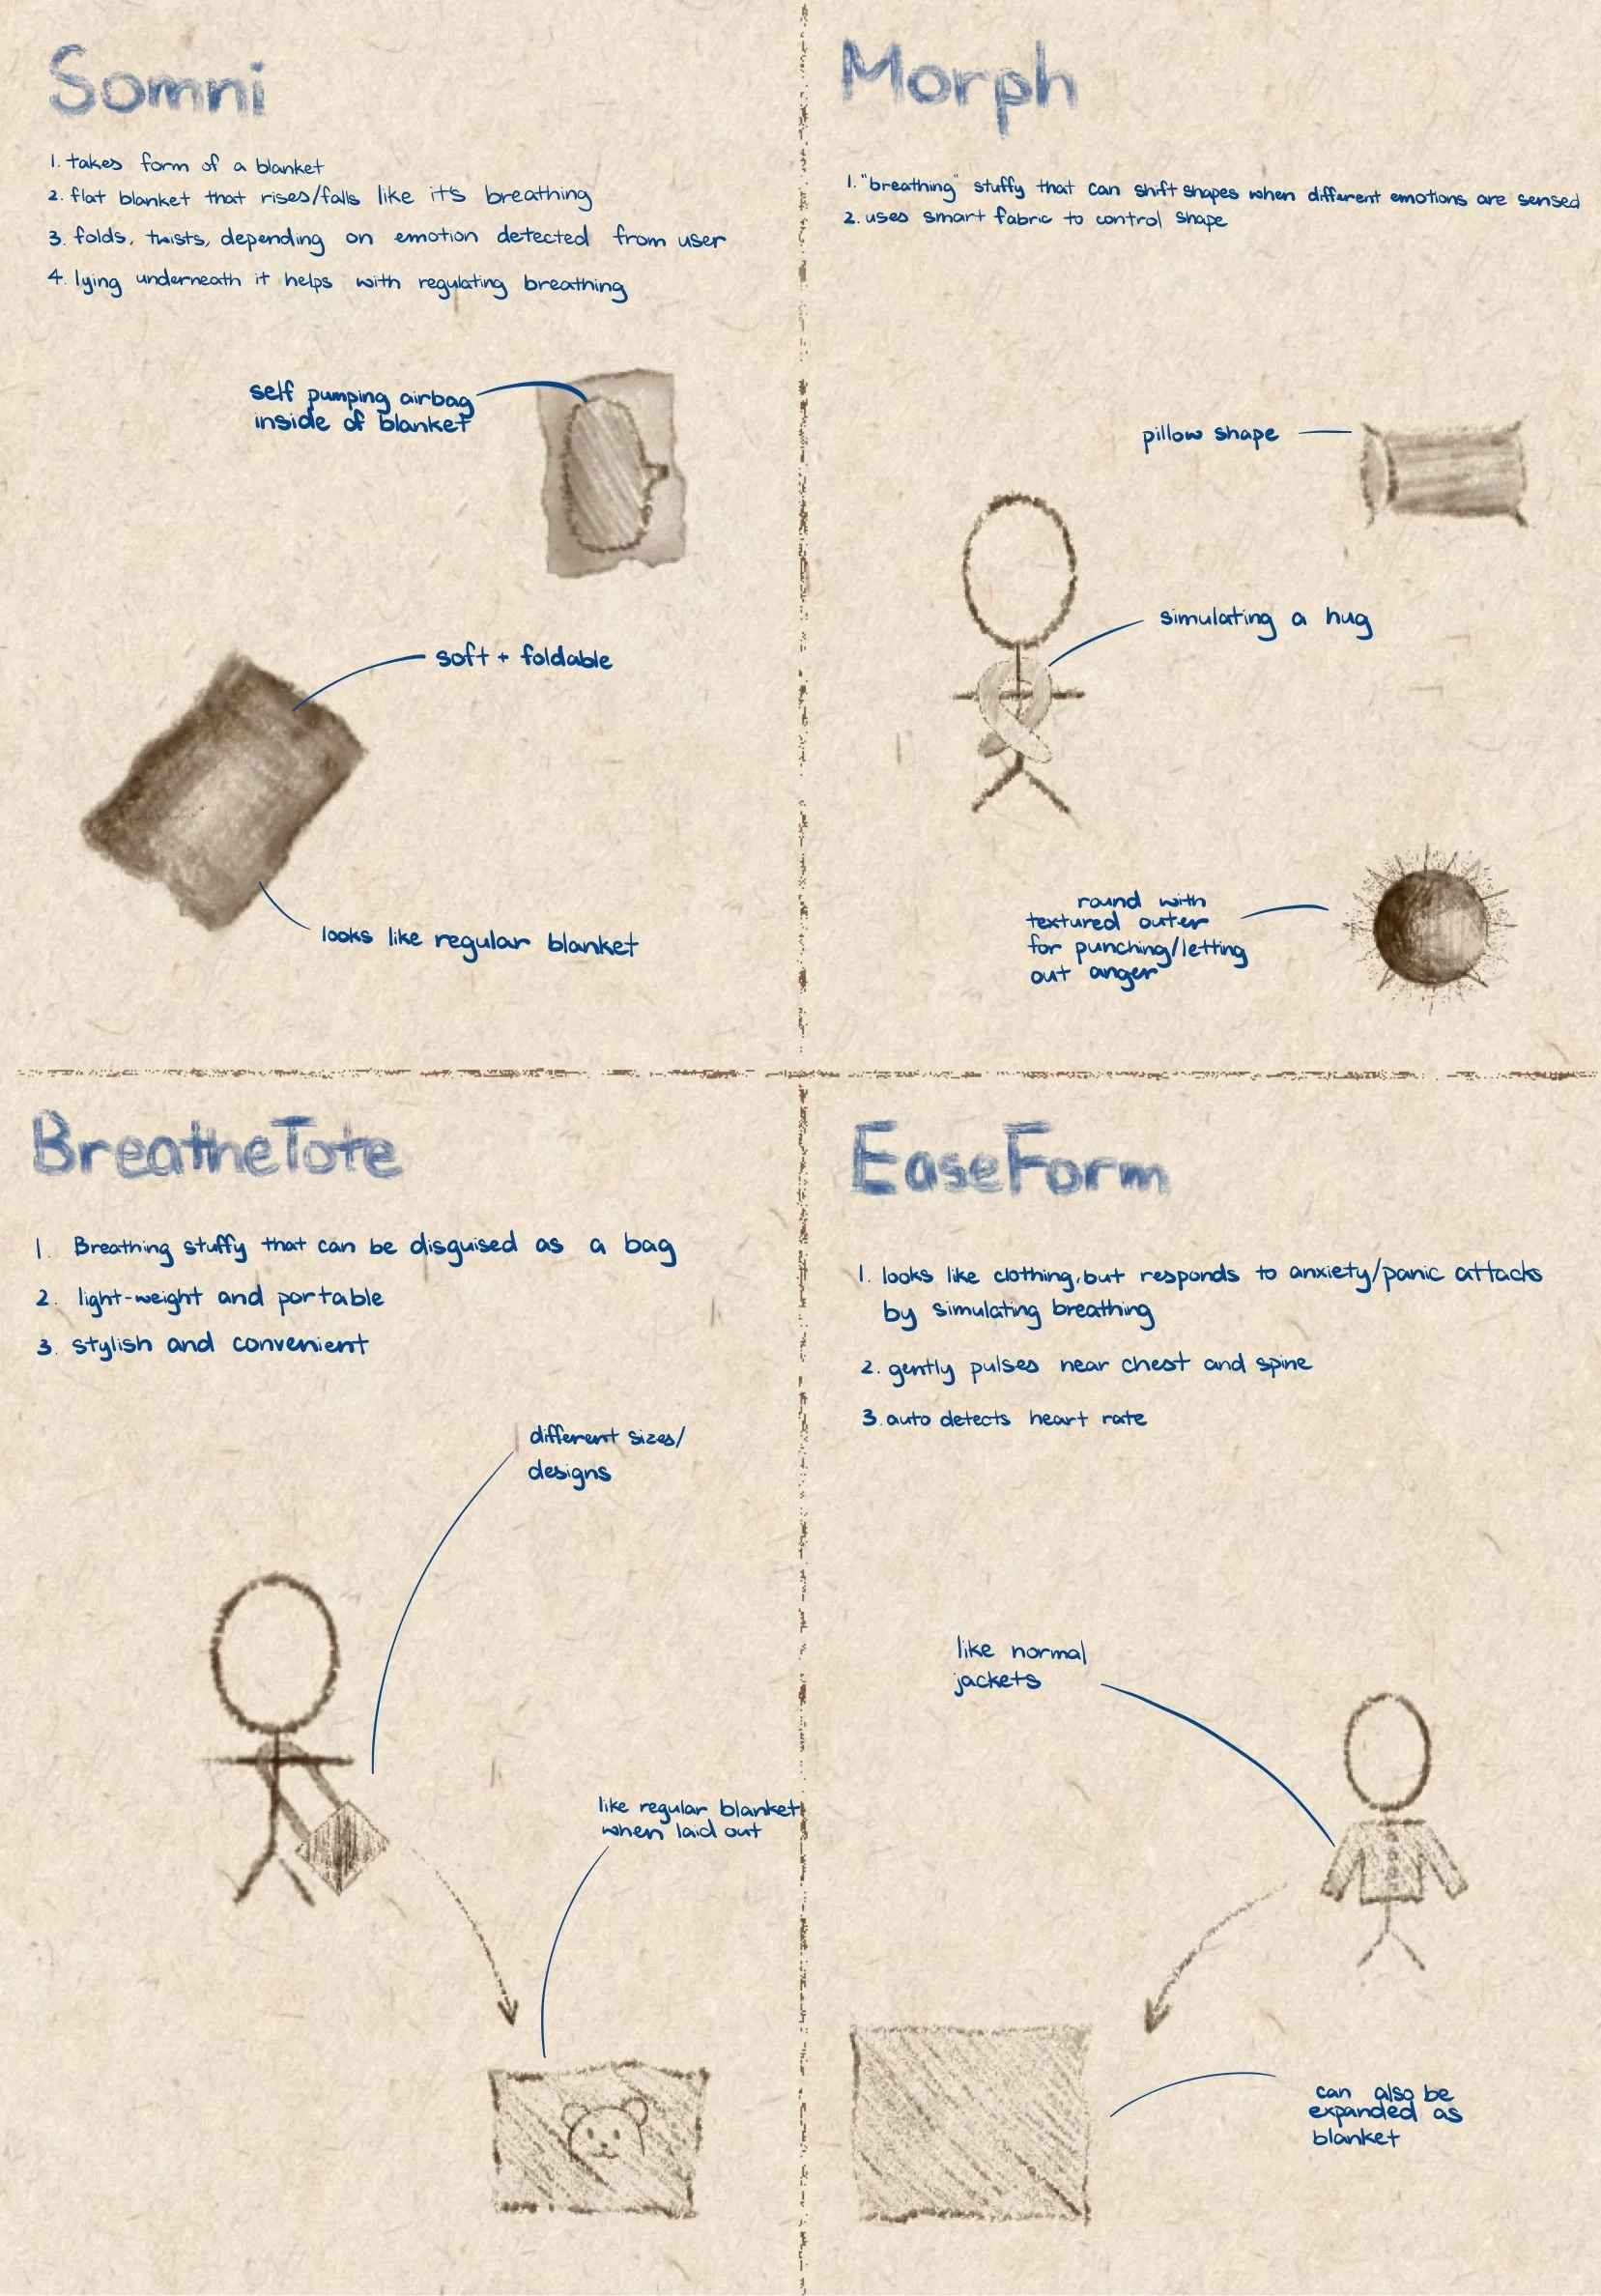 Somni
1. takes form of a blanket
2. flat blanket that rises/falls like it's breathing
3. folds, twists, depending on emotion detected from user
4. lying underneath it helps with regulating breathing
self pumping airbag
inside of blanket
soft + foldable
looks like regular blanket
Morph
1. "breathing" stuffy that can shift shapes when different emotions are sensed
2. uses smart fabric to control shape
pillow shape
simulating a hug
round with
textured outer
for punching/letting
out anger
BreatheTote
1. Breathing stuffy that can be disguised as a bag
2. light-weight and portable
3. stylish and convenient
different sizes/
designs
like regular blanket
when laid out
EaseForm
1. looks like clothing, but responds to anxiety/panic attacks
by simulating breathing
2. gently pulses near chest and spine
3. auto detects heart rate
like normal
jackets
can also be
expanded as
blanket